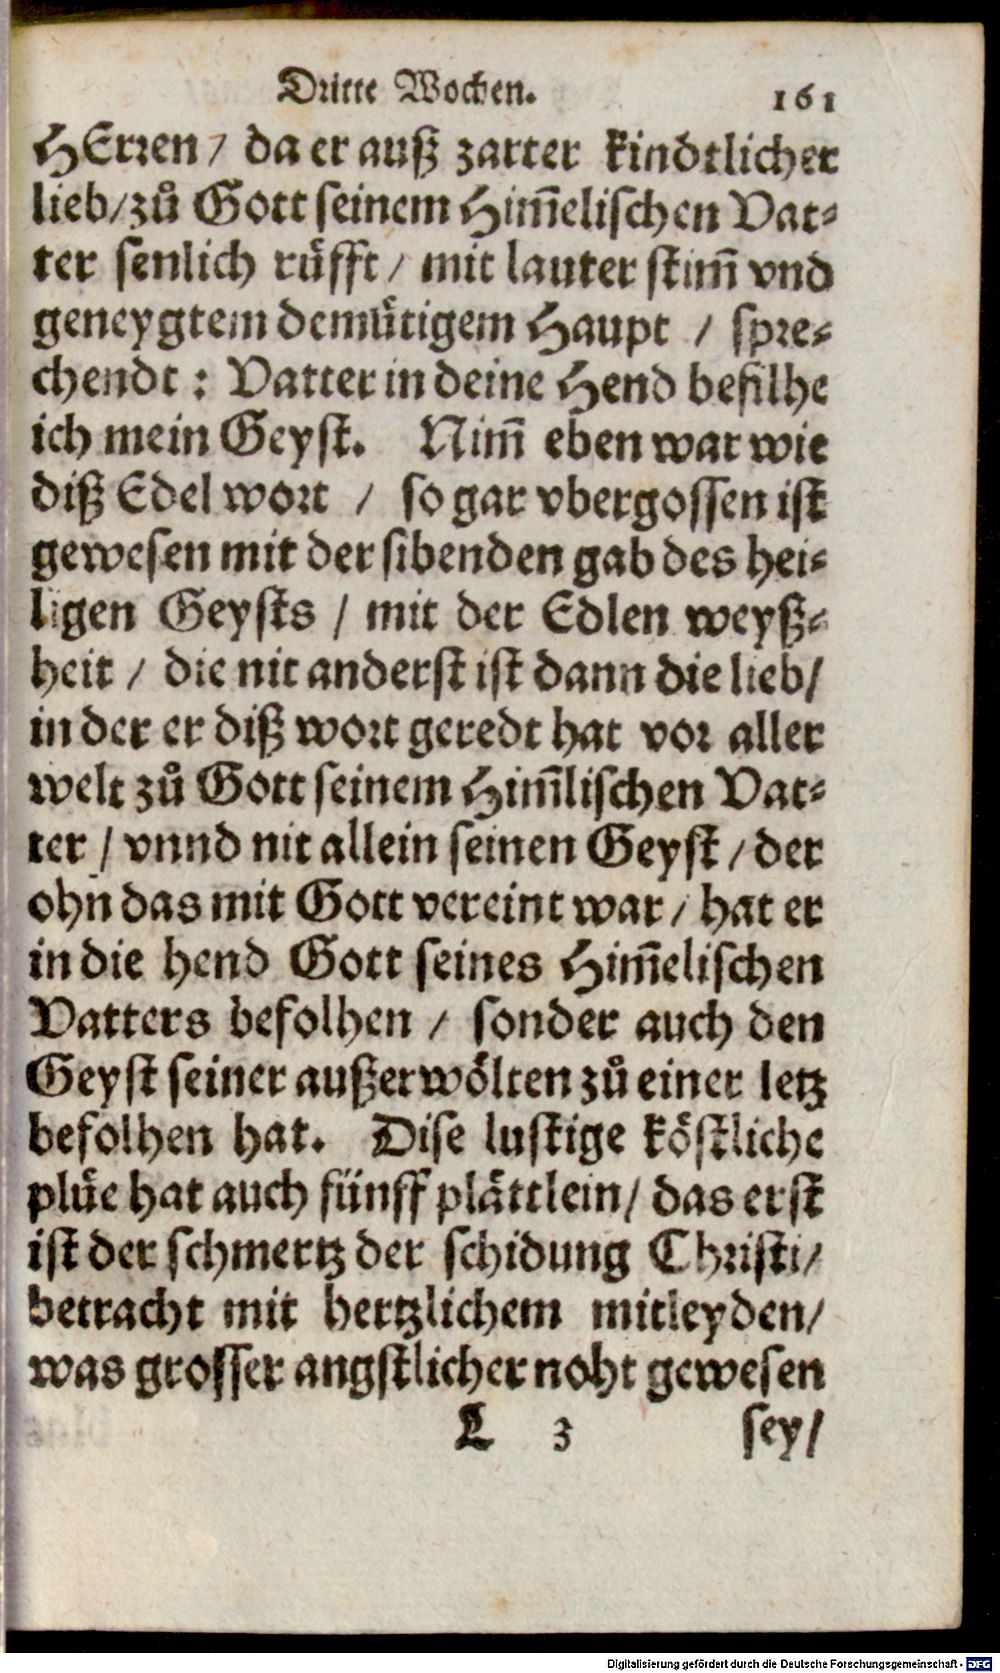 Dritte Wochen. 161
HErren / da er auß zarter kindtlicher
lieb / zů Gott seinem Him̅elischen Vat⸗
ter senlich rüfft / mit lauter stim̅ vnd
geneygtem demütigem Haupt / spre⸗
chendt : Vatter in deine Hend befilhe
ich mein Geyst. Nim̅ eben war wie
diß Edel wort / so gar vbergossen ist
gewesen mit der sibenden gab des hei⸗
ligen Geysts / mit der Edlen weyß⸗
heit / die nit anderst ist dann die lieb /
in der er diß wort geredt hat vor aller
welt zů Gott seinem Him̅lischen Vat⸗
ter / vnnd nit allein seinen Geyst / der
ohn das mit Gott vereint war / hat er
in die hend Gott seines Him̅elischen
Vatters befolhen / sonder auch den
Geyst seiner außerwölten zů einer letz
befolhen hat. Dise lustige köstliche
plüe hat auch fünff plättlein / das erst
ist der schmertz der schidung Christi /
betracht mit hertzlichem mitleyden /
was grosser angstlicher noht gewesen
L 3 sey /
Digitalisierung gefördert durch die Deutsche Forschungsgemeinschaft - DFG